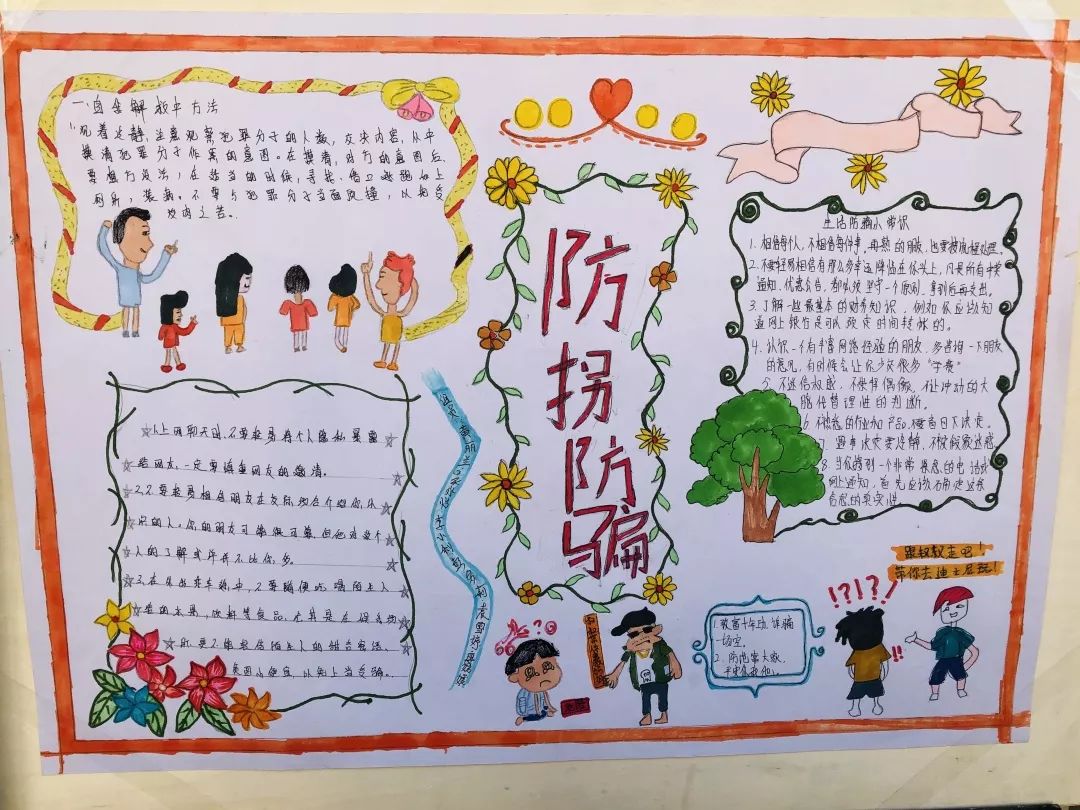 一、自舍解救中方法
1.沉着冷静,注意观察犯罪分子的人数,交谈内容,从中
摸清犯罪分子作案的意图。在摸清,对方的意图后,
要想方设法,在适当的时候,寻找、借口
厕所,装病。不要与犯罪分子当面顶撞,以免受
皮肉之苦。
防拐防骗
生活防骗小常识
1.相信每个人,不相信每件事。再熟的朋友,也要按流程处理。
2.不要轻易相信有那么多幸运降临在你头上,凡是所有中奖
通知,优惠公告,都必须坚守一个原则,拿到后再支出。
3.了解一些最基本的财务知识,例如你应该知
道网上银行是可以设定时间转帐的。
4.认识一个有丰富网络经验的朋友,多咨询一下朋友
的意见,有时候会让你少交很多“学费”
5.不迷信权威,不要拜偶像,不让冲动的大
脑代替理性的判断。
6.不熟悉的行业和产品,不要当日下决定。
7.遇事决定要冷静,不被假象迷惑
8.当你接到一个非常紧急的电话或
网上通知,首先应该确定这条
信息的真实性
1.以上网聊天时,不要轻易将个人隐私暴露
给网友,一定要慎重网友的邀请。
2.不要轻易相信朋友在交际场合介绍你认
识的人。你的朋友可能很可靠,但他对这个
人的了解或许并不比你多。
3.在外出乘车途中,不要随便吃喝陌生人
给的水果、饮料等食品,尤其是在
不要轻信陌生人的甜言蜜语,
贪图小便宜,以免上当受骗。
跟叔叔走吧!
带你去迪士尼玩!
!?!?!
!!
?
1.致富十年功,诈骗
一场空。
2.防范靠大家,